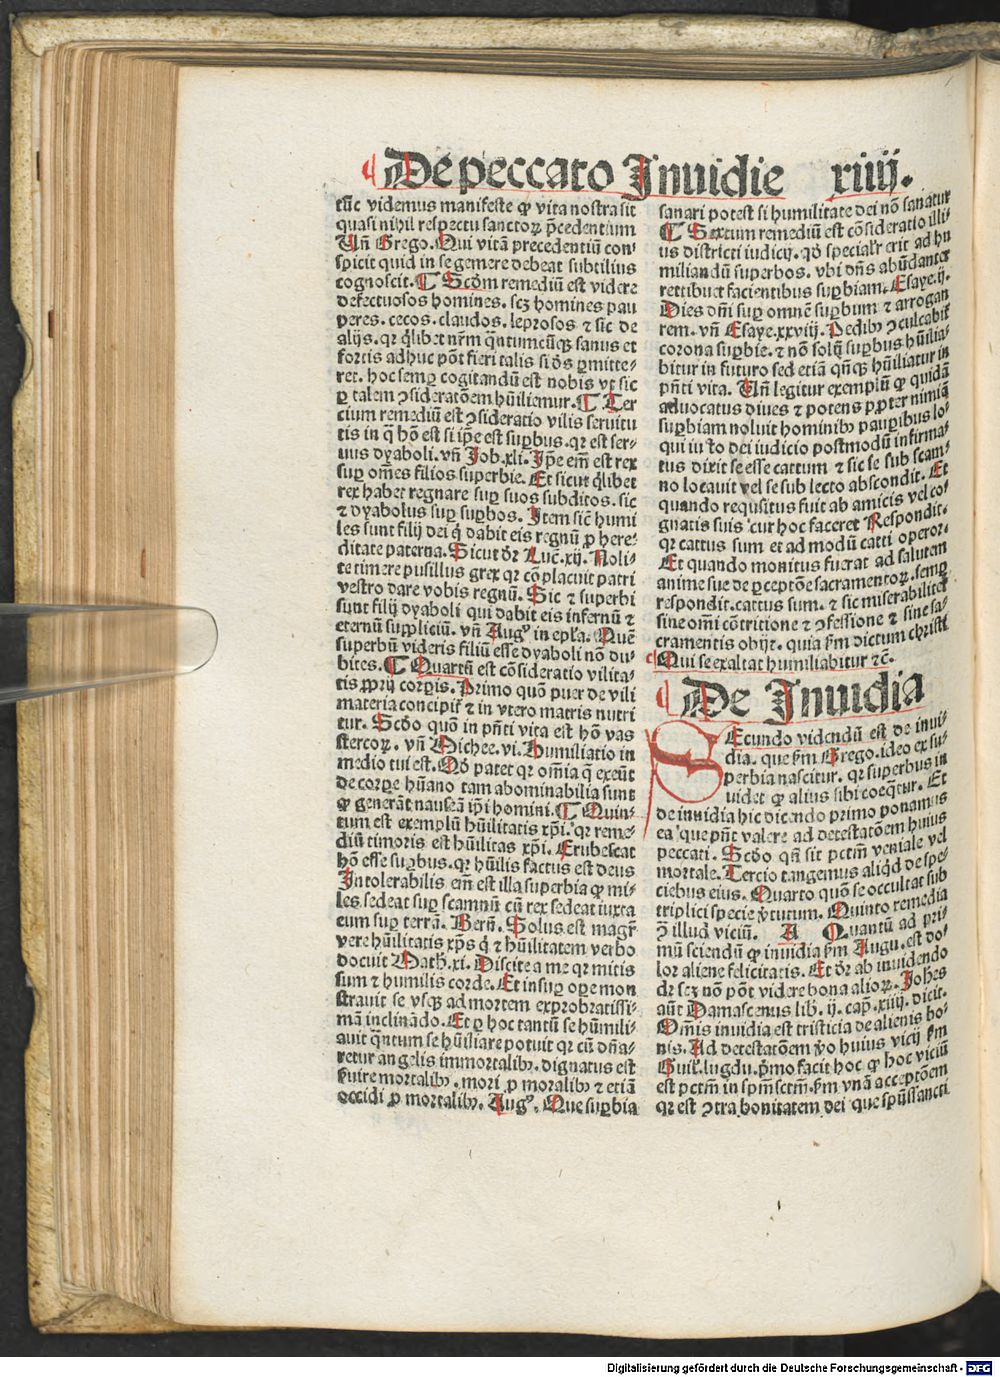 De peccato Inuidie xiiij.
tūc videmus manifeste ꝙ vita nostra sit
quasi nihil respectu sanctoꝝ p̄cedentium
Vn̄ Grego. Qui vitā precedentiū con-
spicit quid in se gemere debeat subtilius
cognoscit. ¶ Scḋm remediū est videre
defectuosos homines. scꝫ homines pau
peres. cecos. claudos. leprosos ⁊ sic de
alijs. qꝛ q̇libet nr̄m q̄ntumcūqꝫ sanus et
fortis adhuc pōt fieri talis si ds̄ ꝑmitte-
ret. hoc semꝑ cogitandū est nobis vt sic
ꝑ talem ↄsideratōem hūiliemur. ¶ Ter
cium remediū est ↄsideratio vilis seruitu
tis in q̄ hō est si ip̄e est suꝑbus. qꝛ est ser-
uus dyaboli. vn̄ Job.xli. Ip̄e em̄ est rex
suꝑ om̄es filios superbie. Et sicut q̇libet
rex habet regnare suꝑ suos subditos. sic
⁊ dyabolus suꝑ suꝑbos. Item sic̄ humi
les sunt filij dei q̇ dabit eis regnū ꝓ here-
ditate paterna. Sicut dr̄ Luc̄.xij. Noli-
te timere pusillus grex qꝛ cōplacuit patri
vestro dare vobis regnū. Sic ⁊ superbi
sunt filij dyaboli qui dabit eis infernū ⁊
eternū suppliciū. vn̄ Augꝰ in epl̄a. Quē
superbū videris filiū esse dyaboli nō du-
bites. ¶ Quartū est cōsideratio vilita-
tis ꝓprij corꝑis. Primo quō puer de vili
materia concipit̄ ⁊ in vtero matris nutri
tur. Scḋo quō in p̄nti vita est hō vas
stercoꝝ. vn̄ Michee.vi. Humiliatio in
medio tui est. Qḋ patet qꝛ om̄ia q̄ exeūt
de corꝑe hūano tam abominabilia sunt
ꝙ generāt nauseā ip̄i homini. ¶ Quin-
tum est exemplū hūilitatis xp̄i. qꝛ reme-
diū timoris est hūilitas xp̄i. Erubescat
hō esse suꝑbus. qꝛ hūilis factus est deus
Intolerabilis em̄ est illa superbia ꝙ mi-
les sedeat suꝑ scamnū cū rex sedeat iuxta
eum suꝑ terrā. Bern̄. Solus est magr̄
vere hūilitatis xp̄s q̇ ⁊ hūilitatem verbo
docuit Math̄.xi. Discite a me qꝛ mitis
sum ⁊ humilis corde. Et insuꝑ oꝑe mon
strauit se vsqꝫ ad mortem exprobratissi-
mā inclinādo. Et ꝑ hoc tantū se hūmili-
auit q̄ntum se hūiliare potuit qꝛ cū dn̄a-
retur angelis immortalibꝰ. dignatus est
ẜuire mortalibꝰ. mori ꝓ moralibꝰ ⁊ etiā
occidi ꝓ mortalibꝰ. Augꝰ. Que suꝑbia
sanari potest si humilitate dei nō sanatur
¶ Sextum remediū est cōsideratio illi-
us districti iudicij. qḋ specialr̄ erit ad hu
miliandū superbos. vbi dn̄s abūdanter
rettibuet facientibus suꝑbiam. Esaye.ij.
Dies dn̄i suꝑ omnē suꝑbum ⁊ arrogan
rem. vn̄ Esaye.xxviij. Pedibꝰ ↄculcabit̄
corona suꝑbie. ⁊ nō solū suꝑbus hūilia-
bitur in futuro sed etiā qn̄qꝫ hūiliatur in
p̄nti vita. Vn̄ legitur exemplū ꝙ quidā
aduocatus diues ⁊ potens ꝓpter nimiā
suꝑbiam noluit hominibꝰ pauꝑibus lo-
qui iusto dei iudicio postmodū infirma-
tus dixit se esse cattum ⁊ sic se sub scam-
no locauit vel se sub lecto abscondit. Et
quando requsitus fuit ab amicis vel co-
gnatis suis cur hoc faceret Respondit.
qꝛ cattus sum et ad modū catti operor.
Et quando monitus fuerat ad salutem
anime sue de ꝑceptōe sacramentoꝝ. semꝑ
respondit. cattus sum. ⁊ sic miserabiliter
sine om̄i cōtritione ⁊ ↄfessione ⁊ sine sa-
cramentis obijt. quia ẜm dictum christi
Qui se exaltat humiliabitur ⁊c̄.
De Inuidia
SEcundo videndū est de inui-
dia. que ẜm Grego. ideo ex su-
perbia nascitur. qꝛ superbus in
uidet ꝙ alius sibi coeq̄tur. Et
de inuidia hic dicendo primo ponamus
ea que pn̄t valere ad detestatōem huius
peccati. Scḋo qn̄ sit pctm̄ veniale vel
mortale. Tercio tangemus aliq̇d de spe-
ciebus eius. Quarto quō se occultat sub
triplici specie v̇tutum. Quinto remedia
ↄ̄ illud viciū. A Quantū ad pri-
mū sciendū ꝙ inuidia ẜm Augu. est do-
lor aliene felicitatis. Et dr̄ ab inuidendo
dꝛ scꝫ nō pōt videre bona alioꝝ. Joh̄es
aūt Damascenus lib. ij. cap̄.xiiij. dicit.
Om̄is inuidia est tristicia de alienis bo-
nis. Ad detestatōem v̇o huius vicij ẜm
Guil̄. lugdu. p̄mo facit hoc ꝙ hoc viciū
est pctm̄ in spm̄sctm̄. ẜm vnā acceptōem
qꝛ est ↄtra bonitatem dei que sp̄uissancti
Digitalisierung gefördert durch die Deutsche Forschungsgemeinschaft - DFG